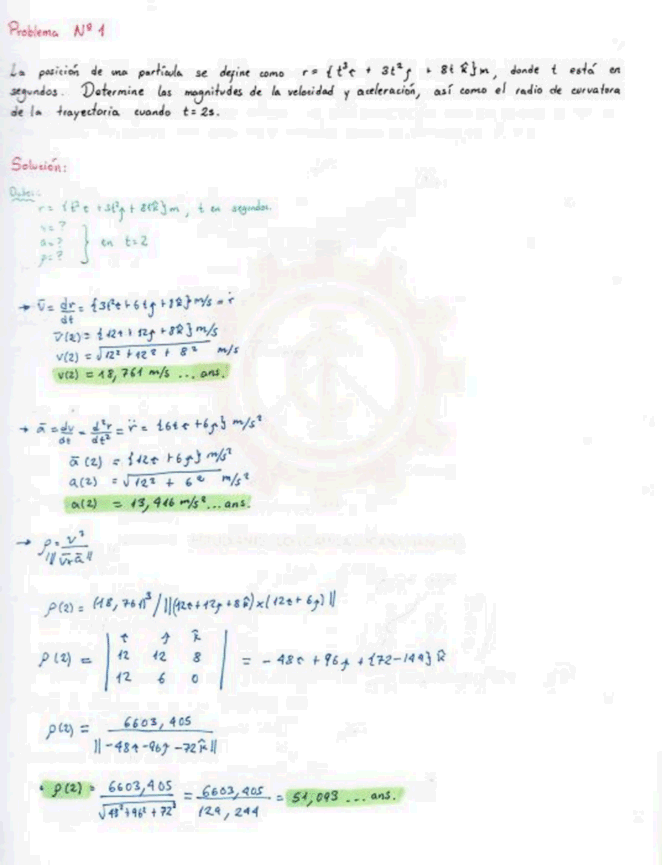 Problema Nº 1
La posición de una partícula se define como r = {t³i + 3t²j + 8t k̂}m, donde t está en
segundos. Determine las magnitudes de la velocidad y aceleración, así como el radio de curvatura
de la trayectoria cuando t = 2s.
Solución:
Datos:
r = {t³i + 3t²j + 8tk̂}m, t en segundos.
v = ?
a = ? } en t = 2
ρ = ?
→ v̄ = dr/dt = {3t²i + 6tj + 8k̂} m/s = ṙ
v̄(2) = {12i + 12j + 8k̂} m/s
v(2) = √12² + 12² + 8² m/s
v(2) = 18,761 m/s ... ans.
→ ā = dv/dt = d²r/dt² = r̈ = {6ti + 6j} m/s²
ā(2) = {12i + 6j} m/s²
a(2) = √12² + 6² m/s²
a(2) = 13,416 m/s² ... ans.
→ ρ = v³/||v̄xā||
ρ(2) = (18,761)³ / ||(12i + 12j + 8k̂) x (12i + 6j)||
i j k̂
ρ(2) = 12 12 8 = - 48i + 96j + {72-144} k̂
12 6 0
ρ(2) = 6603,405 / ||-48i-96j-72k̂||
ρ(2) = 6603,405 / √48²+96²+72² = 6603,405 / 129,244 = 51,093 ... ans.